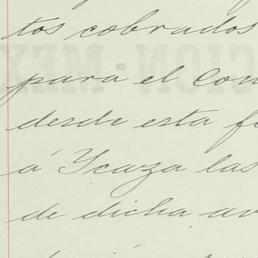 tos cobrados
para el Con
desde esta f
á Ycaza las
de dicha